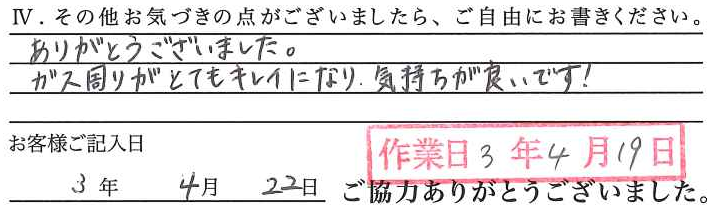 Ⅳ．その他お気づきの点がございましたら、ご自由にお書きください。
ありがとうございました。
ガス周りがとてもキレイになり、気持ちが良いです！
お客様ご記入日
作業日 3 年 4 月 19 日
3 年 4月 22日 ご協力ありがとうございました。